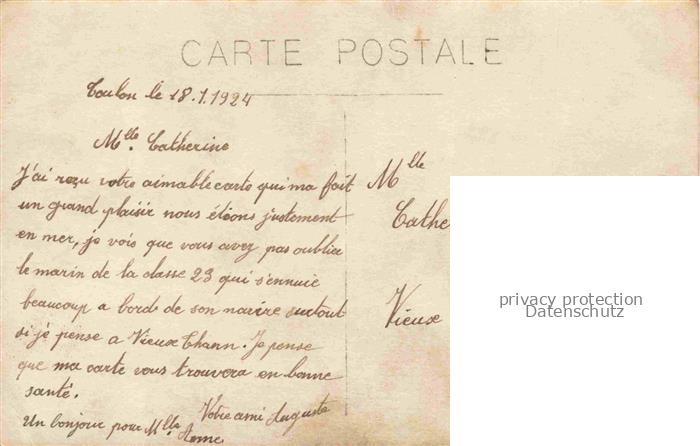 CARTE POSTALE
Toulon le 18.1.1924
Mlle. Catherine
J'ai reçu votre aimable carte qui ma fait
un grand plaisir nous étions justement
en mer, je vois que vous avez pas oublié
le marin de la classe 23 qui s'ennuie
beaucoup a bord de son navire surtout
si je pense a Vieux Thann. Je pense
que ma carte vous trouvera en bonne
santé.
Votre ami Auguste
Un bonjour pour Mlle Anne
Mlle
Cathe
Vieux
privacy protection
Datenschutz